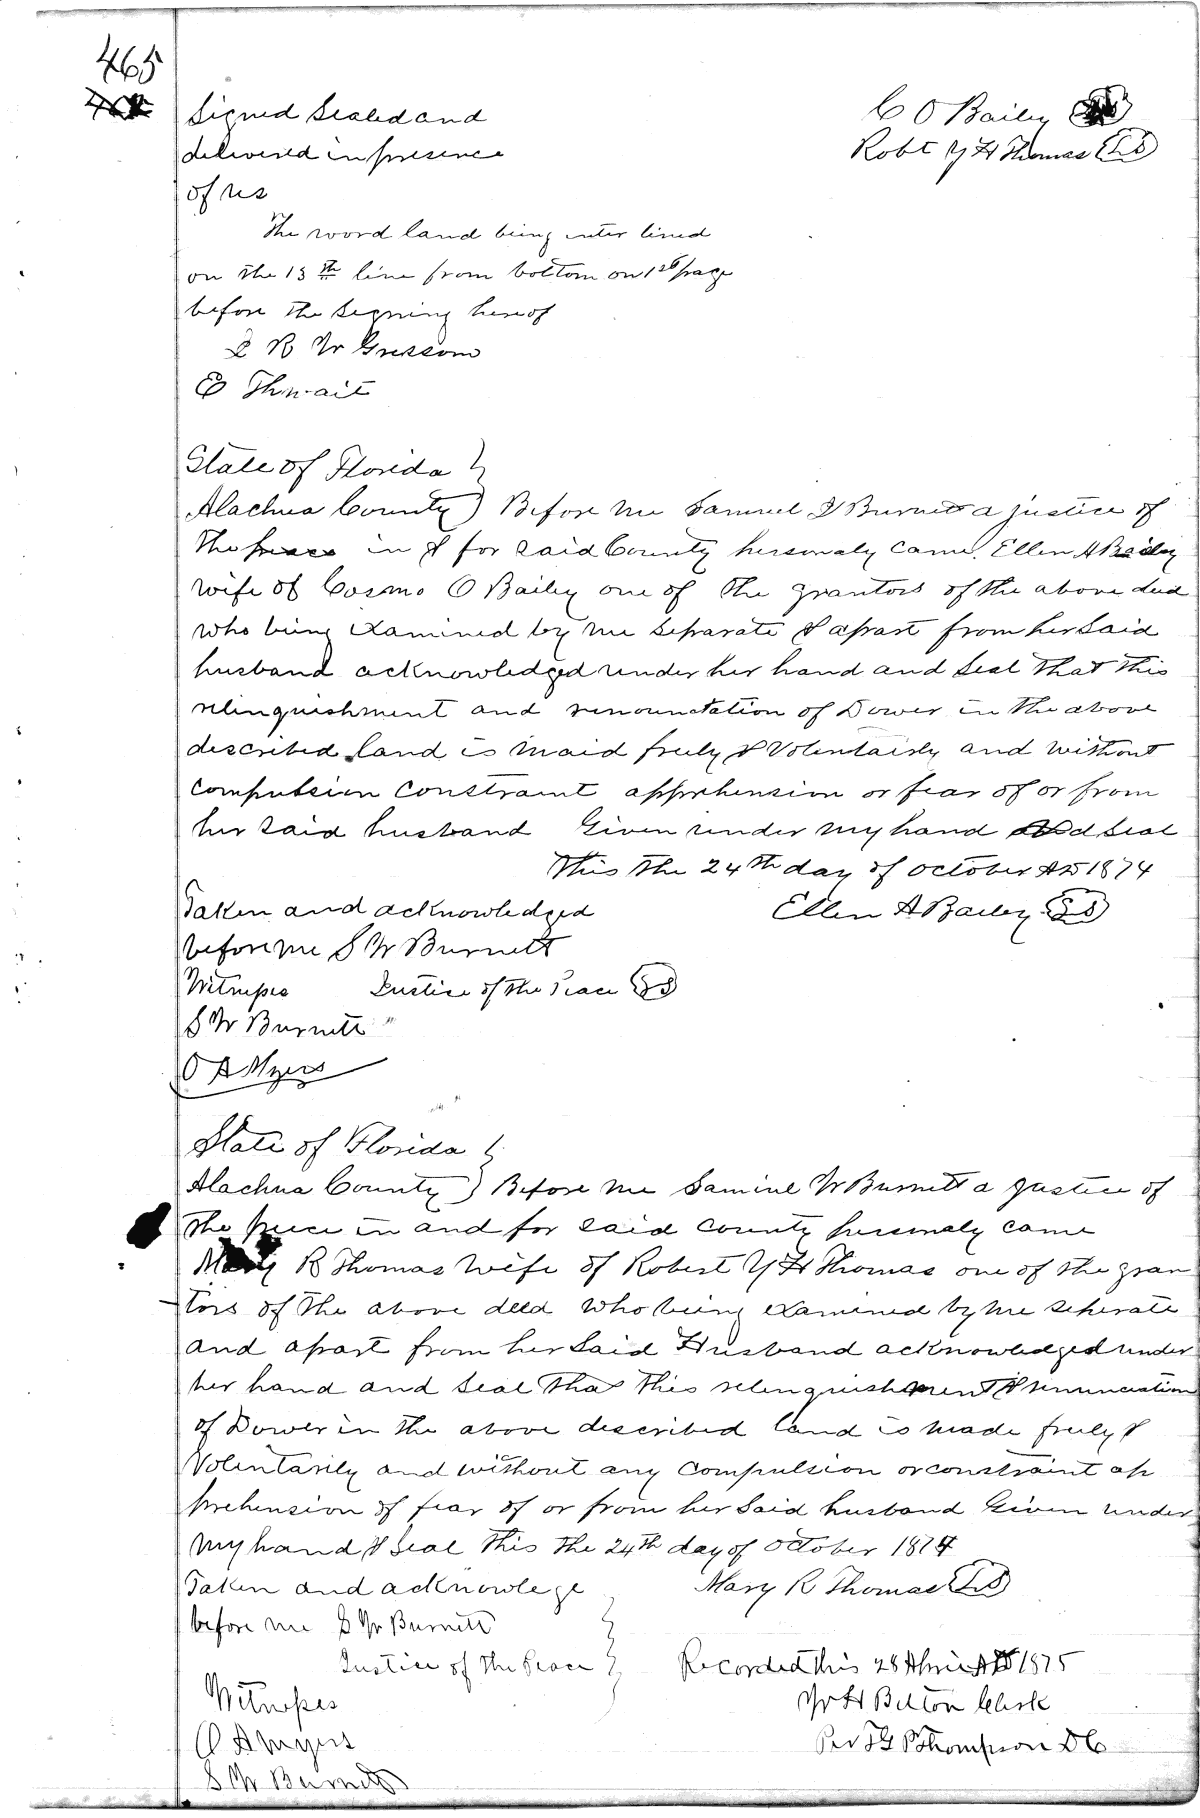 465
Signed Sealed and
C O Bailey
delivered in presence
Robt Y H Thomas LS
of us
The word land being inter lined
on the 13th line from bottom on 1st page
before the signing hereof
R W Gressom
E Thwait
State of Florida }
Alachua County } Before me Samuel W Burnett a justice of
the peace in & for said County personaly came Ellen A Bailey
wife of Cosmo O Bailey one of the grantors of the above deed
who being examined by me separate & apart from her said
husband acknowledged under her hand and seal that this
relinquishment and renounctation of Dower in the above
described land is maid freely & Volentairly and without
compulsion constraint apprhension or fear of or from
her said husband Given under my hand and seal
this the 24th day of October AD 1874
Taken and acknowledged
Ellen A Bailey LS
before me S W Burnett
Witness Justice of the Peace LS
S W Burnett
O A Myers
State of Florida }
Alachua County } Before me Samuel W Burnett a Justice of
the peece in and for said county personaly came
Mary R Thomas wife of Robert Y H Thomas one of the gran
tors of the above deed who being examined by me seperate
and apart from her said Husband acknowledged under
her hand and seal that this relinquishment & renunciation
of Dower in the above described land is made freely &
Volentarily and without any compulsion or constraint ap
prehension of fear of or from her said husband Given under
my hand & seal this the 24th day of October 1874
Taken and acknowlege
Mary R Thomas LS
before me S W Burnett
Justice of the Peace }
Recorded this 28 April AD 1875
Witness
W H Belton Clerk
O A Myers
Per F G P Thompson DC
S W Burnett